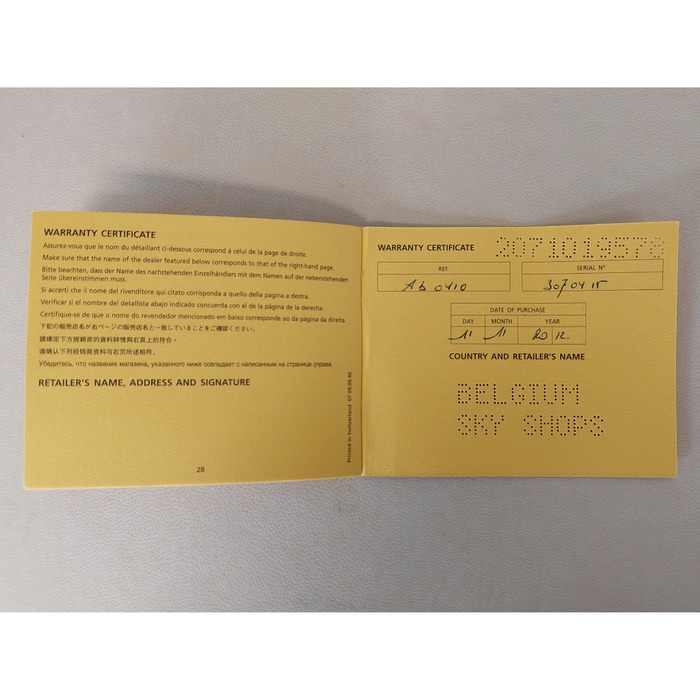 WARRANTY CERTIFICATE
Assurez-vous que le nom du détaillant ci-dessous correspond à celui de la page de droite.
Make sure that the name of the dealer featured below corresponds to that of the right-hand page.
Bitte beachten, dass der Name des nachstehenden Einzelhändlers mit dem Namen auf der nebenstehenden
Seite übereinstimmen muss.
Si accerti che il nome del rivenditore qui citato corrisponda a quello della pagina a destra.
Verificar si el nombre del detallista abajo indicado concuerda con el de la página de la derecha.
Certifique-se de que o nome do revendedor mencionado em baixo corresponde ao da página da direita.
下記の販売店名が右ページの販売店名と一致していることをご確認ください。
請確定下方經銷商的資料詳情與右頁上的符合。
请确认下列经销商资料与右页所述相符。
Убедитесь, что название магазина, указанного ниже совпадает с написанным на странице справа.
RETAILER'S NAME, ADDRESS AND SIGNATURE
28
Printed in Switzerland 07.09.09.40
WARRANTY CERTIFICATE 2071019578
REF. SERIAL N°
Ab 0410 30704 15
DATE OF PURCHASE
DAY MONTH YEAR
11 11 2012.
COUNTRY AND RETAILER'S NAME
BELGIUM
SKY SHOPS